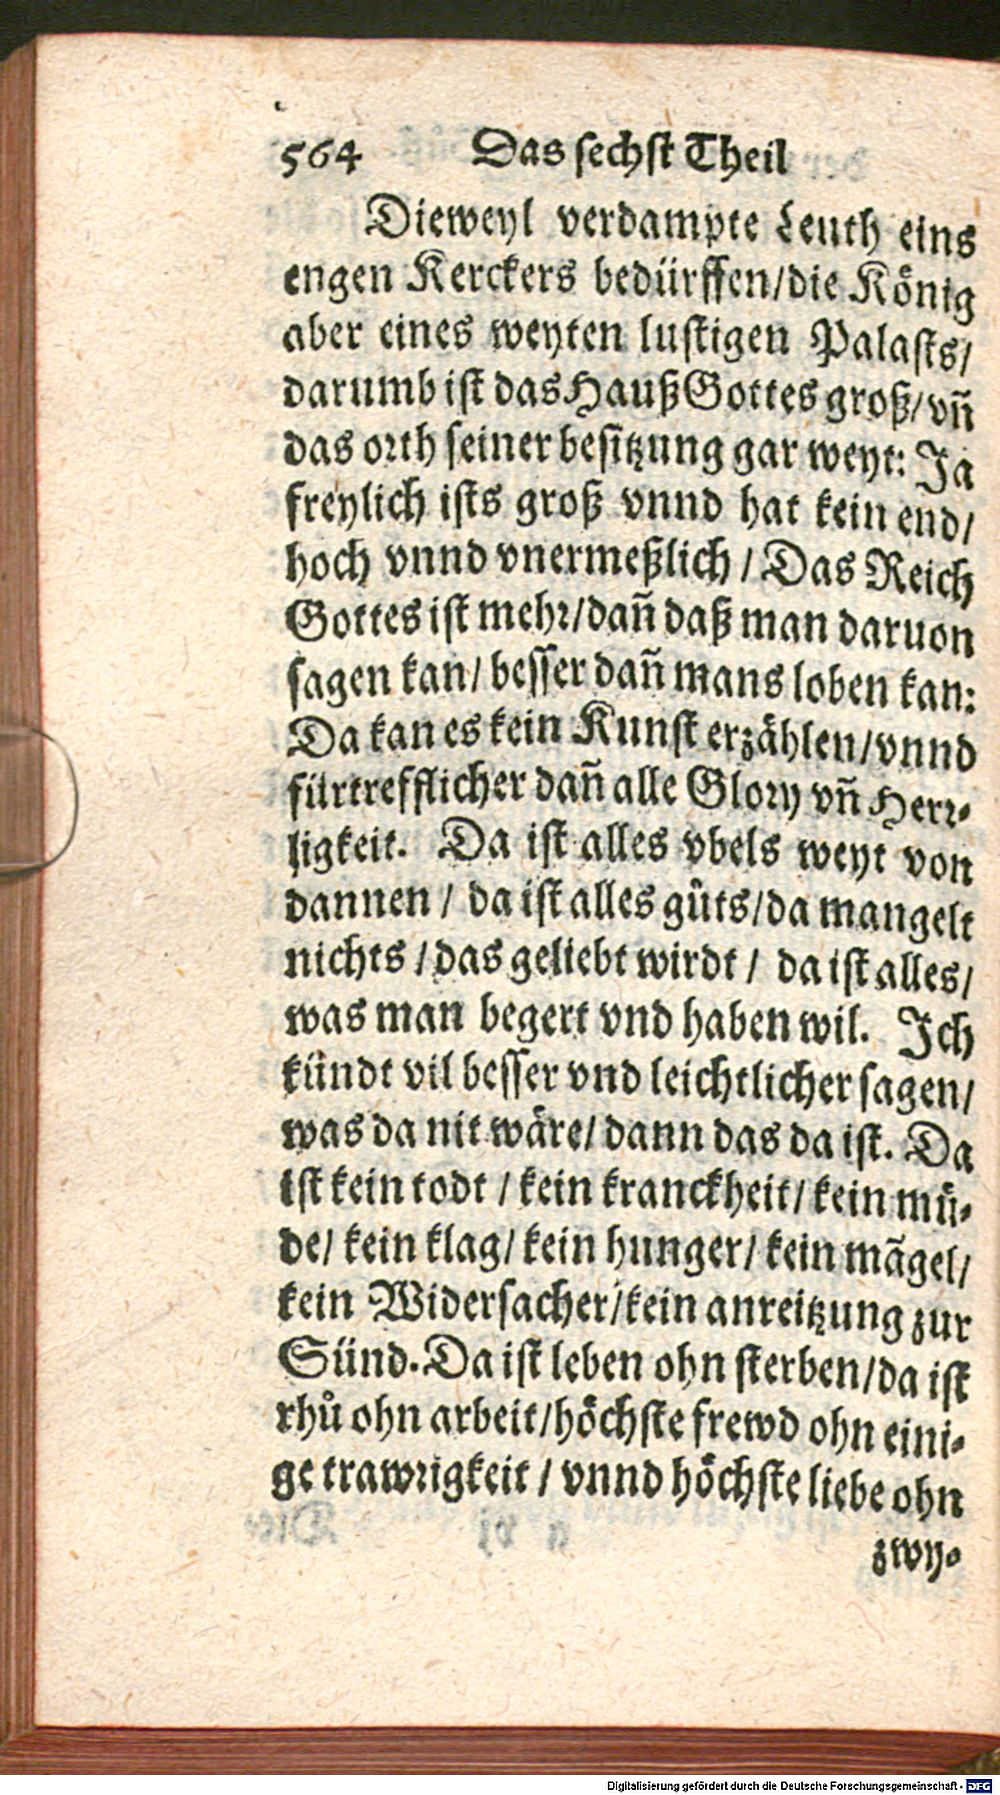 564 Das sechst Theil
Dieweyl verdampte Leuth eins
engen Kerckers bedürffen/die König
aber eines weyten lustigen Palasts/
darumb ist das Hauß Gottes groß/vñ
das orth seiner besitzung gar weyt: Ja
freylich ists groß vnnd hat kein end/
hoch vnnd vnermeßlich / Das Reich
Gottes ist mehr/dañ daß man daruon
sagen kan/ besser dañ mans loben kan:
Da kan es kein Kunst erzählen/vnnd
fürtrefflicher dañ alle Glory vñ Herr-
ligkeit. Da ist alles vbels weyt von
dannen / da ist alles gůts/da mangelt
nichts / das geliebt wirdt / da ist alles/
was man begert vnd haben wil. Ich
kündt vil besser vnd leichtlicher sagen/
was da nit wäre/ dann das da ist. Da
ist kein todt / kein kranckheit/ kein mü-
de/ kein klag/ kein hunger/ kein mãgel/
kein Widersacher/kein anreitzung zur
Sünd. Da ist leben ohn sterben/da ist
rhů ohn arbeit/höchste frewd ohn eini-
ge trawrigkeit / vnnd höchste liebe ohn
zwy-
Digitalisierung gefördert durch die Deutsche Forschungsgemeinschaft - DFG